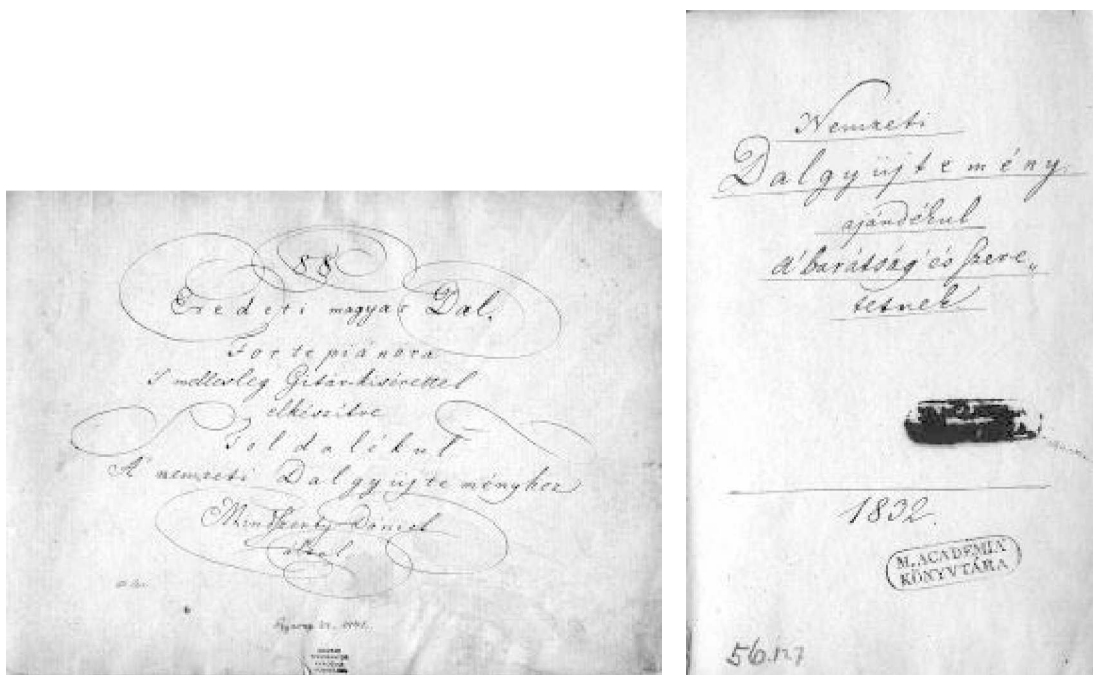 88
Eredeti magyar Dal,
Fortepiánóra
S mellesleg Gitár-kísérettel
elkészítve
Toldalékul
A' nemzeti Dalgyűjteményhez
Mindszenty Dániel
által
Nemzeti
Dalgyüjtemény.
ajándékul
a' barátság' és szere„
tetnek
1832.
M. ACADÉMIA
KÖNYVTÁRA
56.127